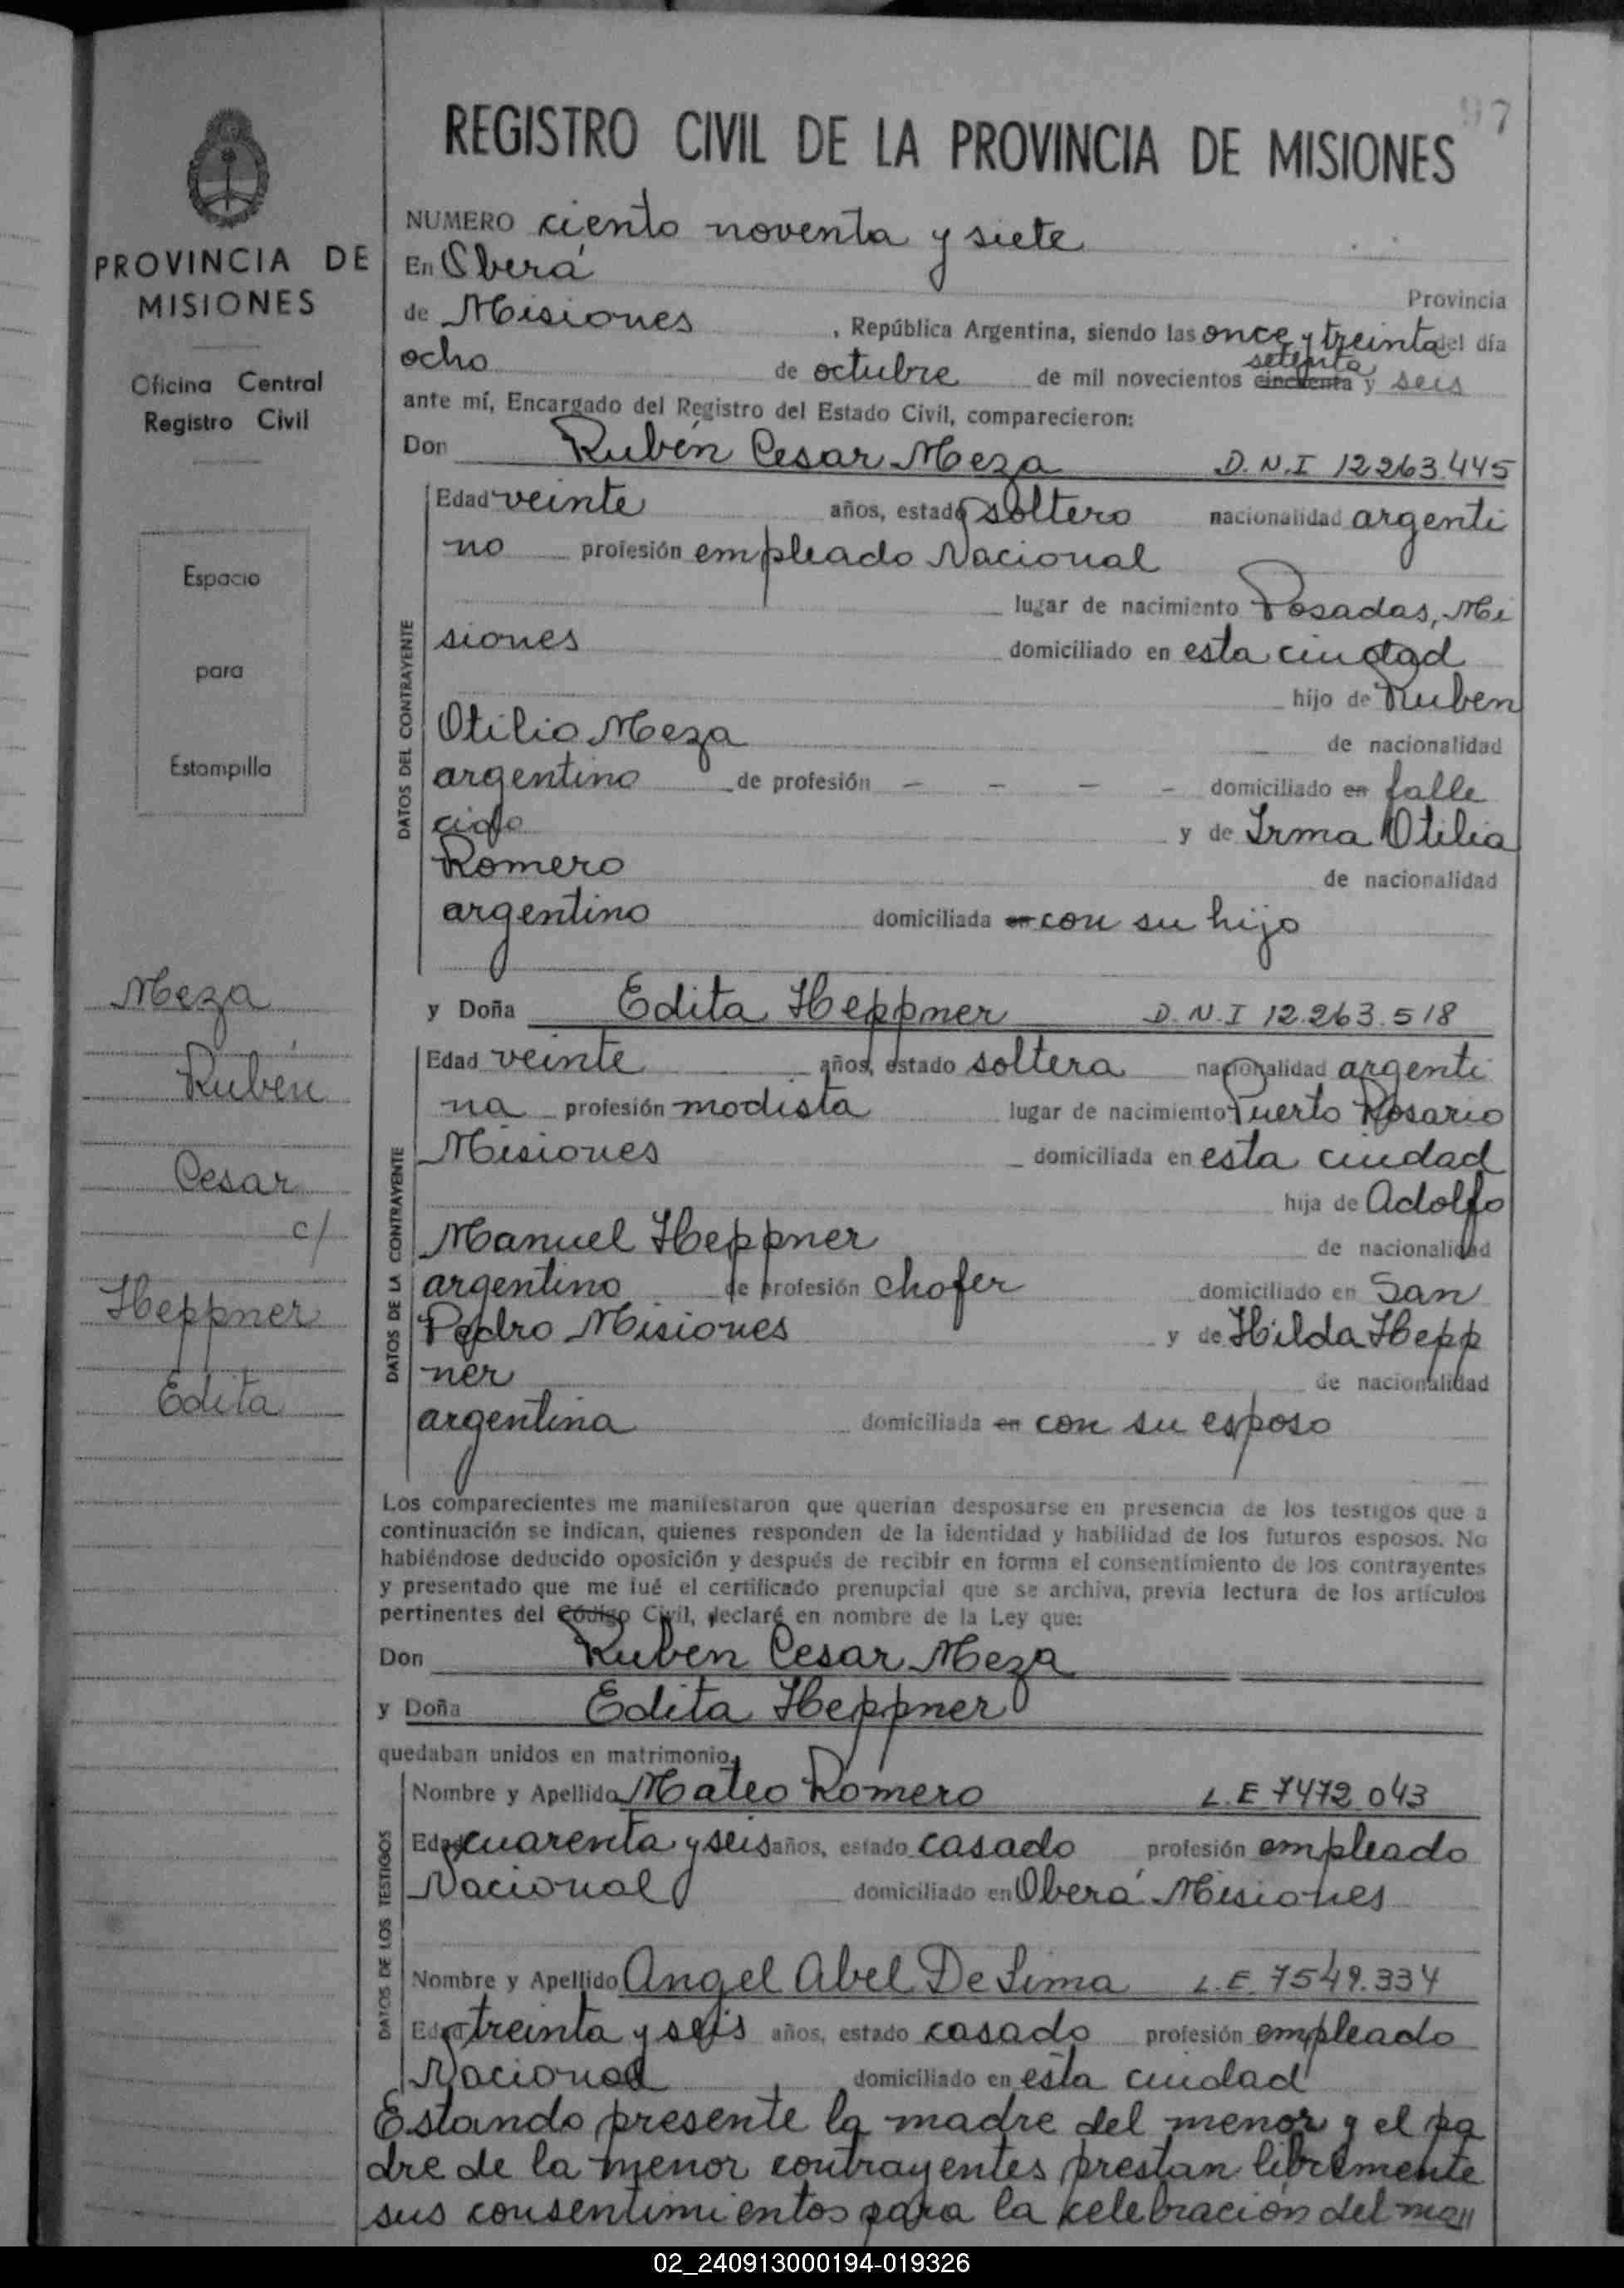 97
REGISTRO CIVIL DE LA PROVINCIA DE MISIONES
PROVINCIA DE
MISIONES
Oficina Central
Registro Civil
Espacio
para
Estampilla
Meza
Rubén
Cesar
c/
Heppner
Edita
NUMERO ciento noventa y siete
En Oberá
Provincia
de Misiones , República Argentina, siendo las once y treinta del día
setenta
ocho de octubre de mil novecientos cincuenta y seis
ante mí, Encargado del Registro del Estado Civil, comparecieron:
Don Rubén Cesar Meza D.N.I 12.263.445
DATOS DEL CONTRAYENTE
Edad veinte años, estado soltero nacionalidad argenti
no profesión empleado Nacional
lugar de nacimiento Posadas, Mi
siones domiciliado en esta ciudad
hijo de Ruben
Otilio Meza de nacionalidad
argentino de profesión - - - - domiciliado en falle
cido y de Irma Otilia
Romero de nacionalidad
argentino domiciliada en con su hijo
y Doña Edita Heppner D.N.I 12.263.518
DATOS DE LA CONTRAYENTE
Edad veinte años, estado soltera nacionalidad argenti
na profesión modista lugar de nacimiento Puerto Rosario
Misiones domiciliada en esta ciudad
hija de Adolfo
Manuel Heppner de nacionalidad
argentino de profesión chofer domiciliado en San
Pedro Misiones y de Hilda Hepp
ner de nacionalidad
argentina domiciliada en con su esposo
Los comparecientes me manifestaron que querían desposarse en presencia de los testigos que a
continuación se indican, quienes responden de la identidad y habilidad de los futuros esposos. No
habiéndose deducido oposición y después de recibir en forma el consentimiento de los contrayentes
y presentado que me fué el certificado prenupcial que se archiva, previa lectura de los artículos
pertinentes del Código Civil, declaré en nombre de la Ley que:
Don Ruben Cesar Meza
y Doña Edita Heppner
quedaban unidos en matrimonio.
DATOS DE LOS TESTIGOS
Nombre y Apellido Mateo Romero L.E 7472.043
Edad cuarenta y seis años, estado casado profesión empleado
Nacional domiciliado en Oberá Misiones
Nombre y Apellido Angel Abel De Lima L.E. 7549.334
Edad treinta y seis años, estado casado profesión empleado
Nacional domiciliado en esta ciudad
Estando presente la madre del menor y el pa
dre de la menor contrayentes prestan libremente
sus consentimientos para la celebración del ma//
02_240913000194-019326